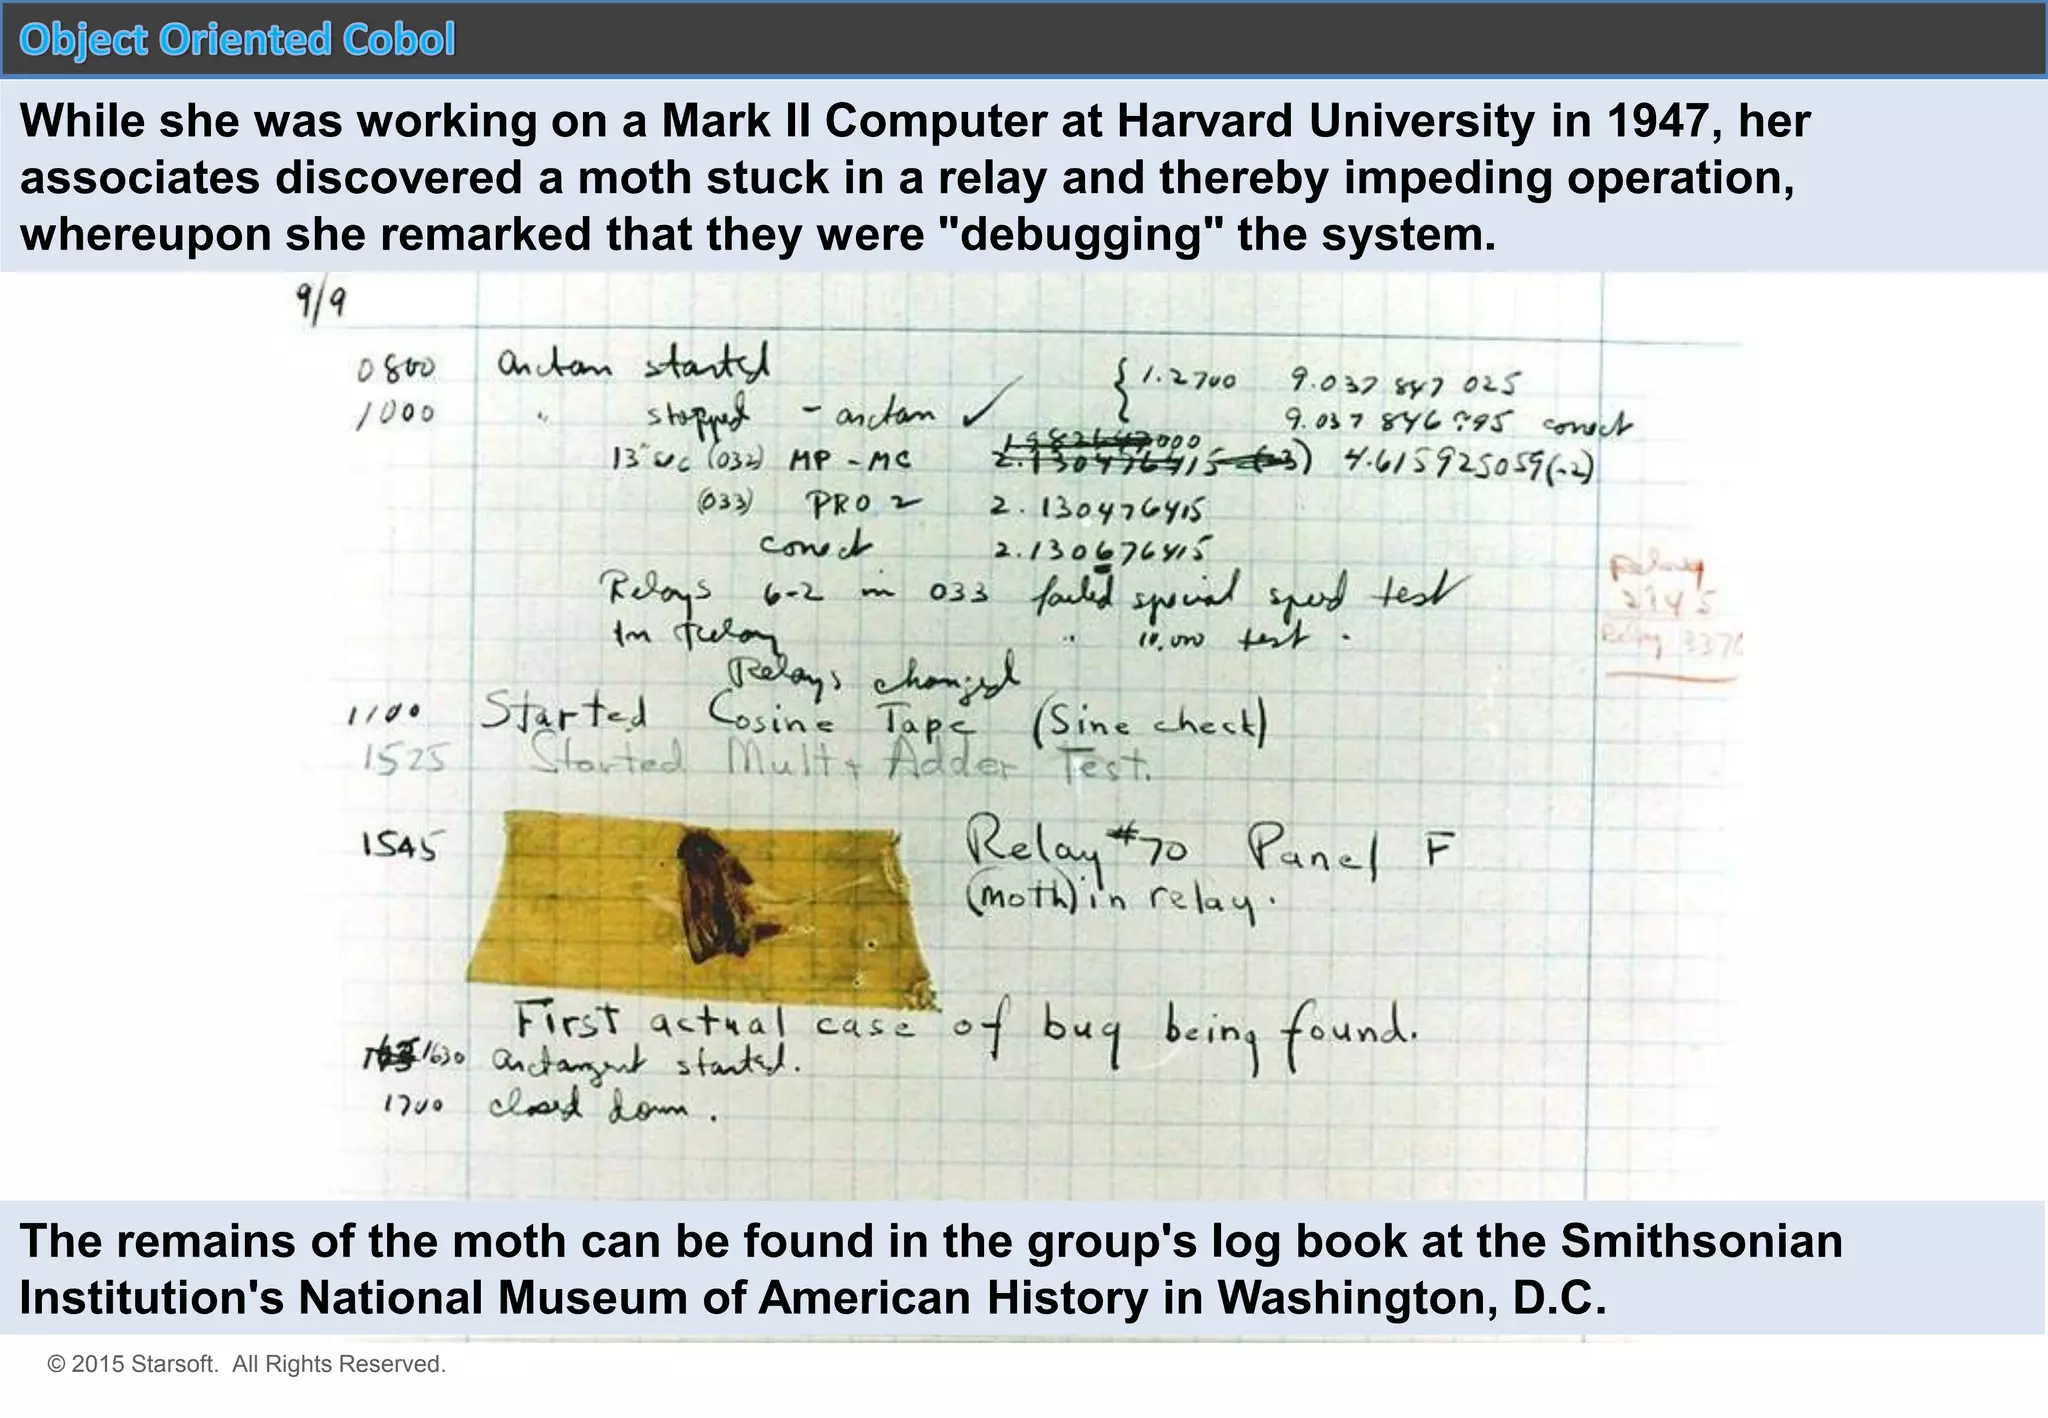 Object Oriented Cobol
While she was working on a Mark II Computer at Harvard University in 1947, her
associates discovered a moth stuck in a relay and thereby impeding operation,
whereupon she remarked that they were "debugging" the system.
9/9
0800 arctan started { 1.2700 9.037 847 025
1000 " stopped - arctan ✓ 9.037 846 995 correct
13 (032) MP - MC 2.130476415 (-3) 4.615925059(-2)
(033) PRO 2 2.130476415
correct 2.130676415
Relays 6-2 in 033 failed special speed test
in relay " 10.000 test.
Relay
2145
Relay 3370
Relays changed
1100 Started Cosine Tape (Sine check)
1525 Started Mult + Adder Test.
1545 Relay #70 Panel F
(moth) in relay.
First actual case of bug being found.
1630 arctangent started.
1700 closed down.
The remains of the moth can be found in the group's log book at the Smithsonian
Institution's National Museum of American History in Washington, D.C.
© 2015 Starsoft. All Rights Reserved.